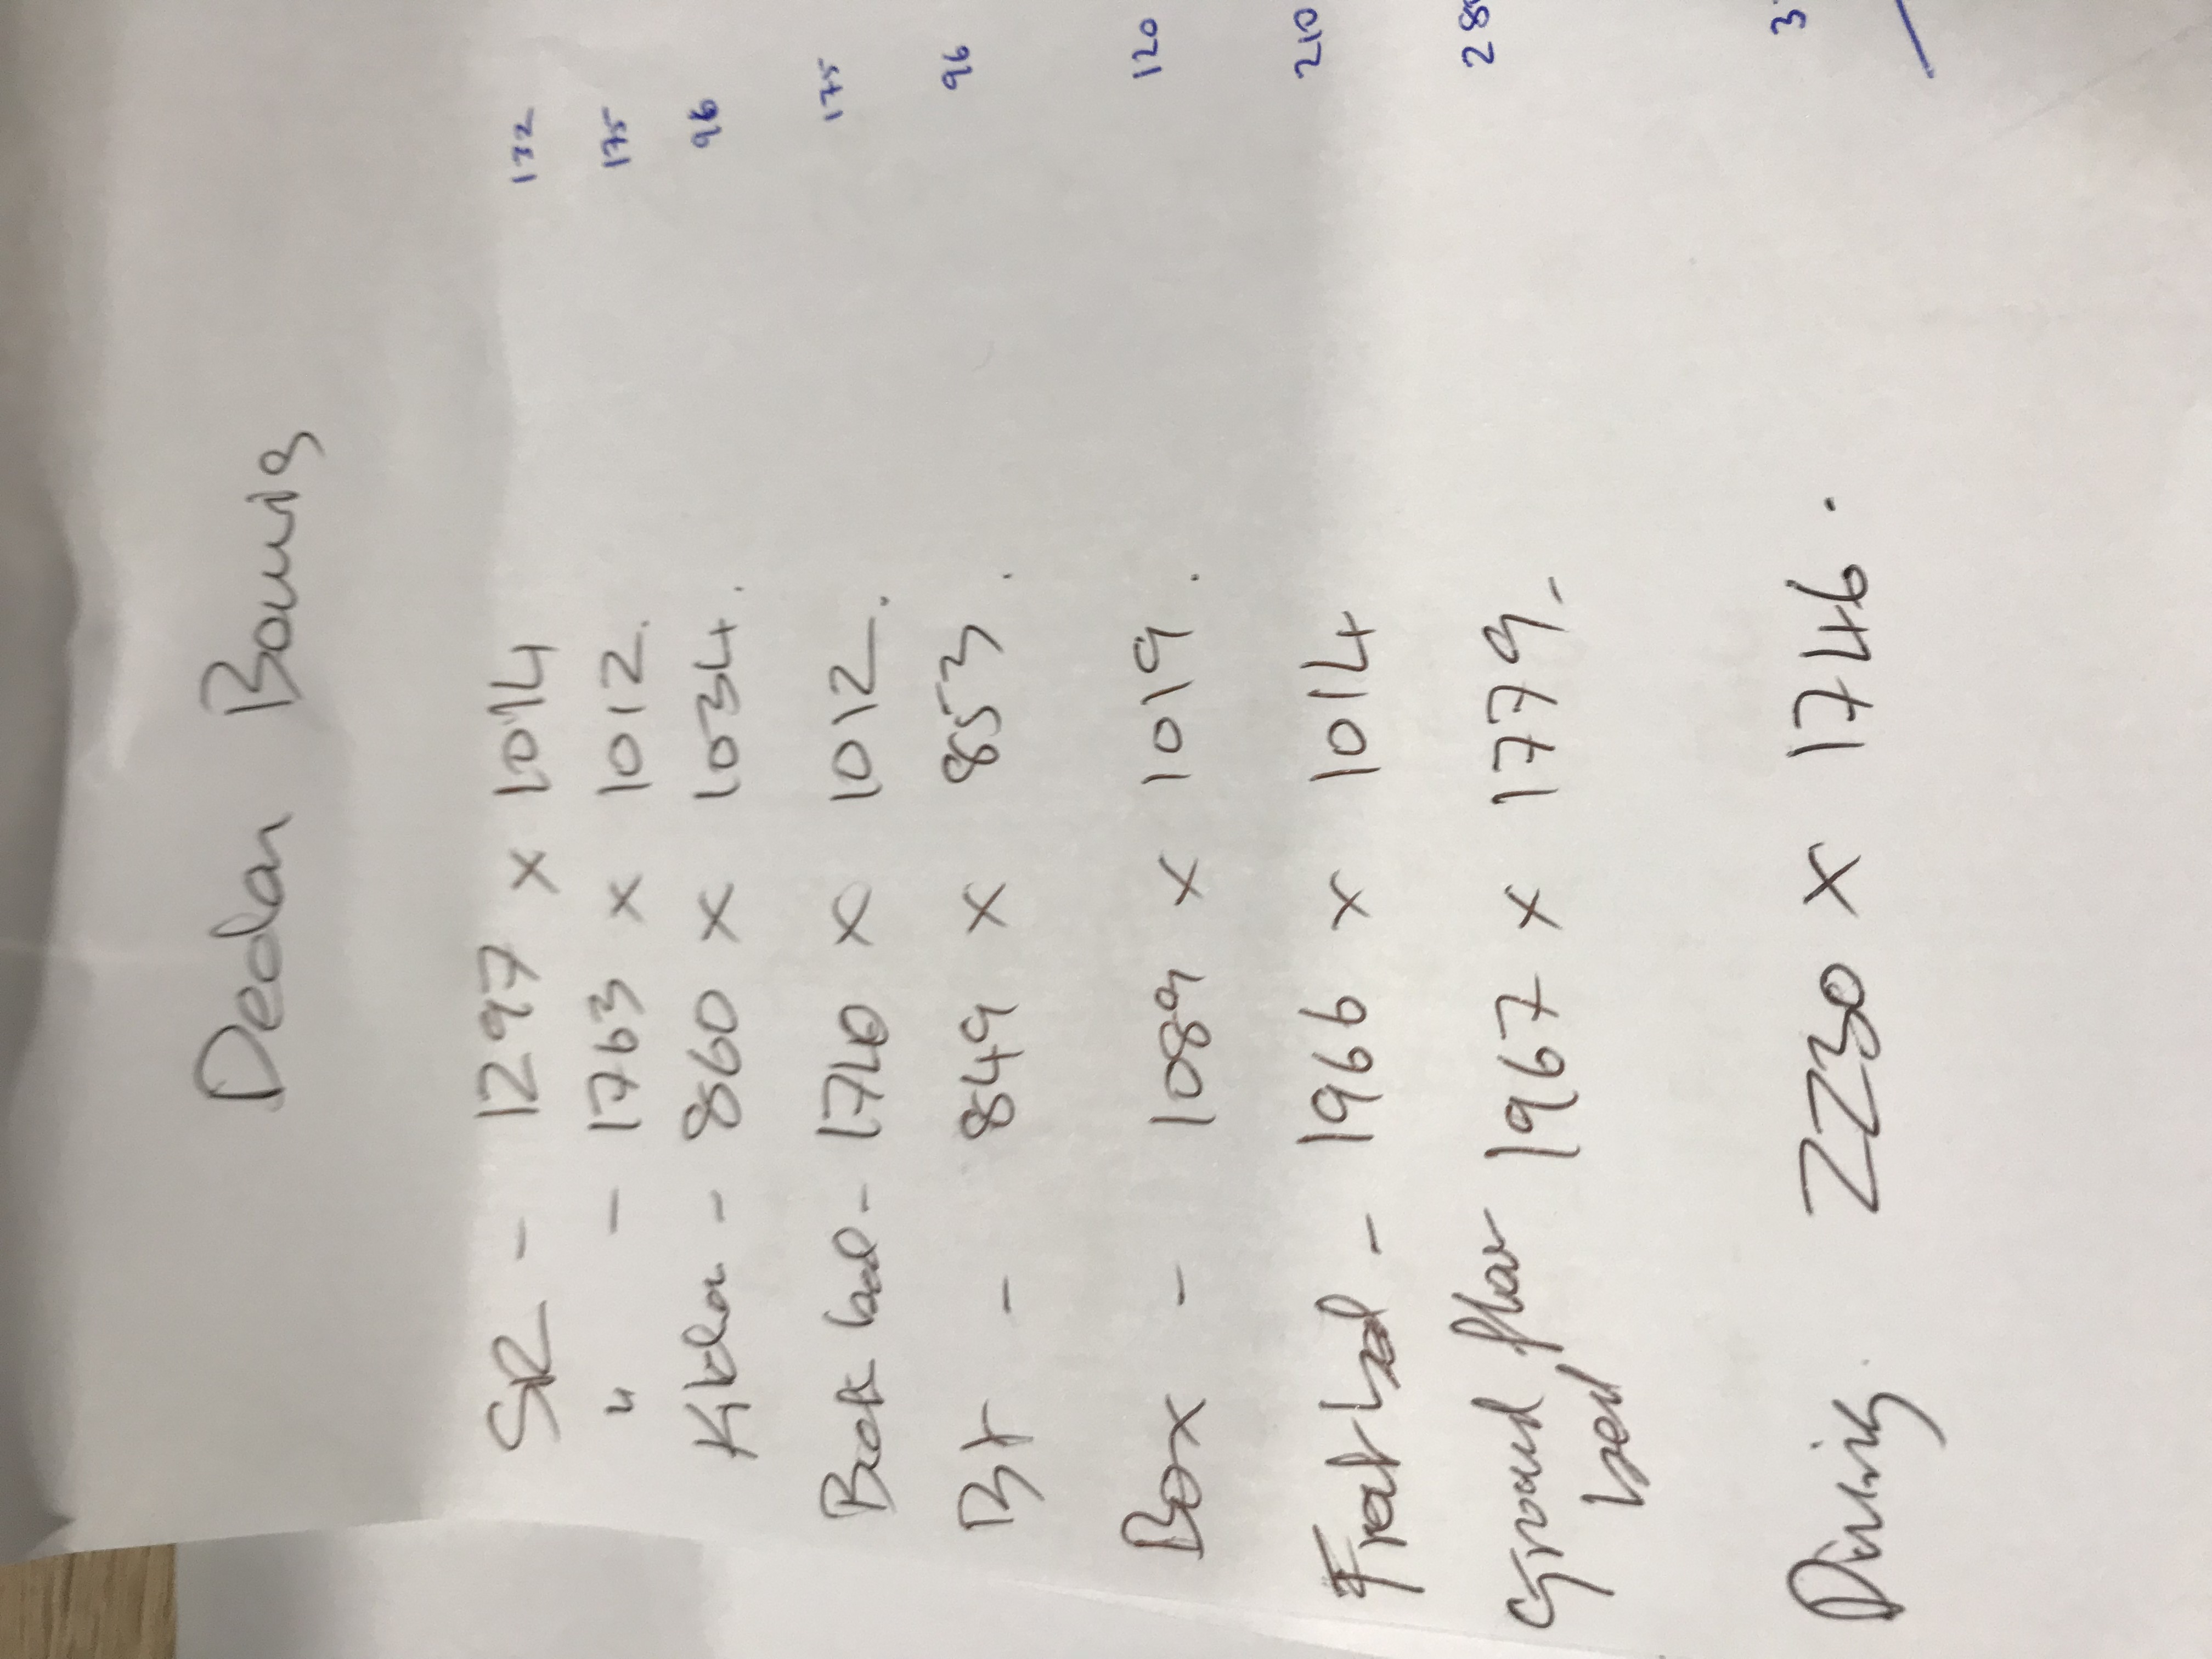 Declan Bowis
SR - 1297 x 1014 132
" - 1763 x 1012. 175
Kitchen - 860 x 1034. 96
Back bed - 1740 x 1012. 175
Br - 849 x 853. 96
Box - 1089 x 1019. 120
Front bed - 1966 x 1014 210
Ground floor 1967 x 1779. 28
bed
Dining 2230 x 1746. 3